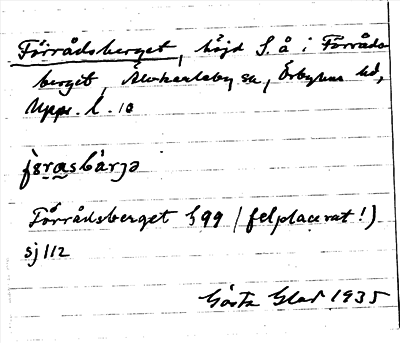 Förrådsberget, höjd S. å i Förråds
berget, Älvkarleby sn, Örbyhus hd,
Upps. l.
Förrådsberget 599 (felplacerat!)
sj 112
Gösta Glad 1935